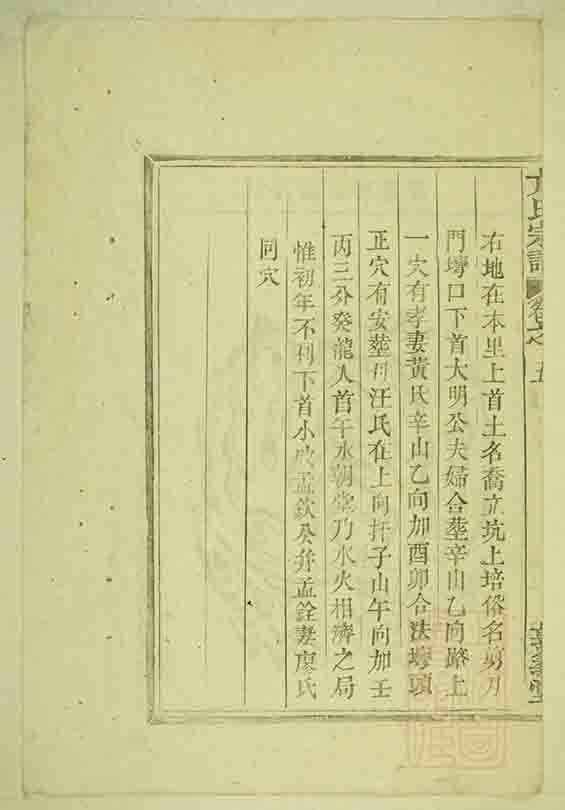 氏宗譜 卷之五
右地在本里上首土名喬立坑上培俗名剪刀
門塝口下首大明公夫婦合塟辛山乙向路上
一穴有孝妻黃氏辛山乙向加酉卯合法塝頭
正穴有安塟 汪氏在上向扦子山午向加壬
丙三分癸龍入首午水朝堂乃水火相濟之局
惟初年不利下首小 孟欽公并孟銓妻廖氏
同穴